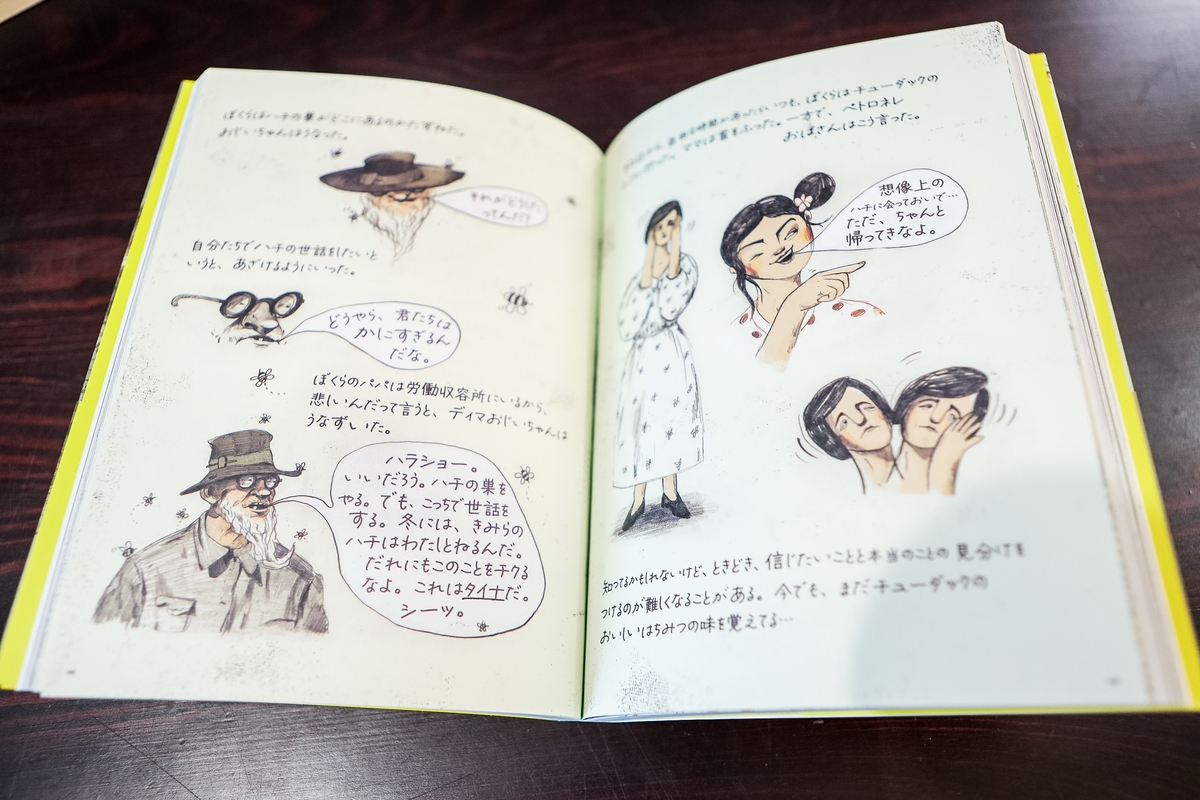 ぼくらはハチの巣がどこにあるのかたずねた。
おじいちゃんはうなった。
それがどうした
ってんだ?
自分たちでハチの世話をしたいと
いうと、あざけるようにいった。
どうやら、君たちは
かにすぎるん
だな。
ぼくらのパパは労働収容所にいるから、
悲しいんだって言うと、ディマおじいちゃんは
うなずいた。
ハラショー。
いいだろう。ハチの巣を
やる。でも、こっちで世話を
する。冬には、きみらの
ハチはわたしとねるんだ。
だれにもこのことをチクる
なよ。これはタイナだ。
シーッ。
時間があったらいつも、ぼくらはチューダックの
ママは首をふった。一方で、ペトロネレ
おばさんはこう言った。
想像上の
ハチに会っておいで…
ただ、ちゃんと
帰ってきなよ。
知ってるかもしれないけど、ときどき、信じたいことと本当のことの見分けを
つけるのが難しくなることがある。今でも、まだチューダックの
おいしいはちみつの味を覚えてる…